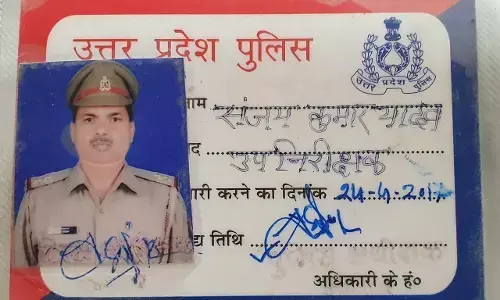 उत्तर प्रदेश पुलिस
उत्तर प्रदेश पुलिस
नाम संजय कुमार यादव
पद उपनिरीक्षक
जारी करने का दिनांक 24-4-2017
तिथि
अधिकारी के ह०